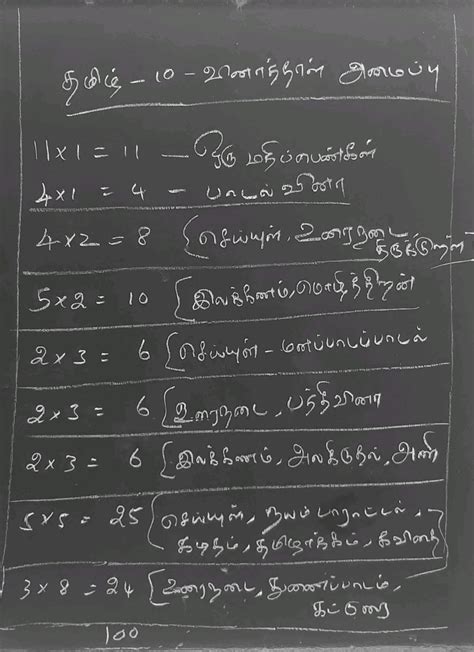 தமிழ் - 10 - வினாத்தாள் அமைப்பு
11 x 1 = 11 - ஒரு மதிப்பெண்கள்
4 x 1 = 4 - பாடல் வினா
4 x 2 = 8 { செய்யுள், உரைநடை
திருக்குறள்
5 x 2 = 10 { இலக்கணம், மொழித்திறன்
2 x 3 = 6 { செய்யுள் - மனப்பாடப்பாடல்
2 x 3 = 6 { உரைநடை, பத்திவினா
2 x 3 = 6 { இலக்கணம், அலகிடுதல், அணி
5 x 5 = 25 { செய்யுள், நயம் பாராட்டல்,
கடிதம், தமிழாக்கம், கவிதை
3 x 8 = 24 { உரைநடை, துணைப்பாடம்,
கட்டுரை
100